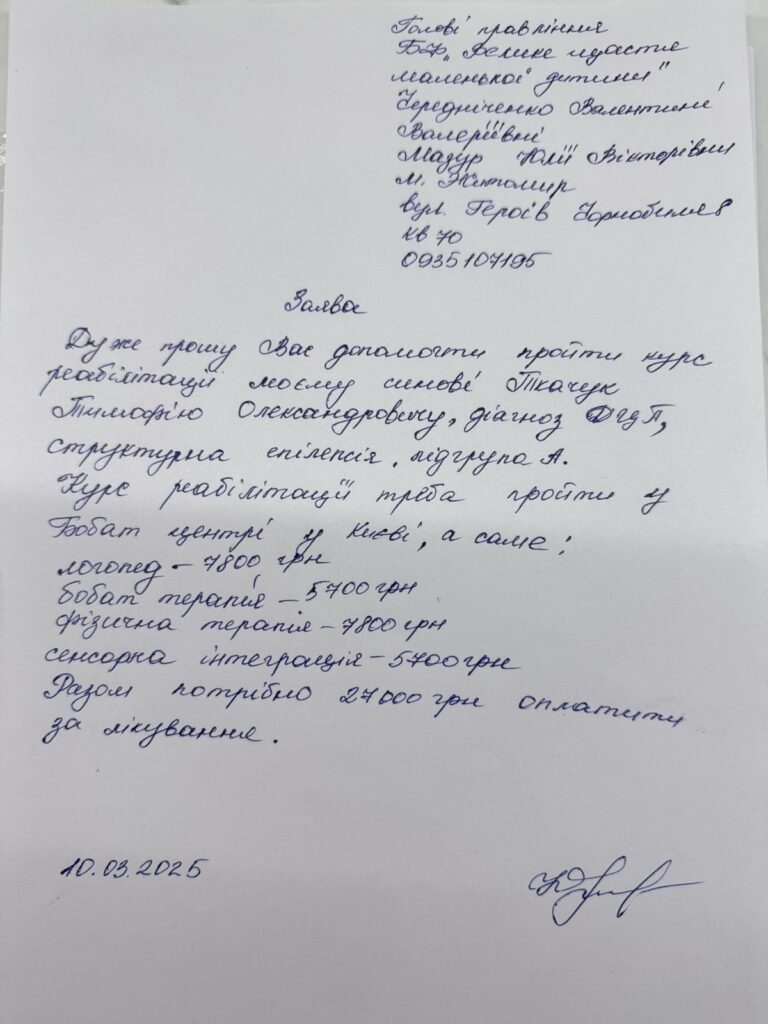 Голові правління
БФ „Велике щастя
маленької дитини"
Чередніченко Валентині
Валеріївні
Мазур Юлії Вікторівни
м. Житомир
вул. Героїв Чорнобиля 8
кв 70
0935107195
Заява
Дуже прошу Вас допомогти пройти курс
реабілітації моєму синові Ткачук
Тимофію Олександровичу, діагноз ДЦП,
структурна епілепсія, підгрупа А.
Курс реабілітації треба пройти у
Бобат центрі у Києві, а саме:
логопед – 7800 грн
бобат терапія – 5700 грн
фізична терапія – 7800 грн
сенсорна інтеграція – 5700 грн
Разом потрібно 27000 грн оплатити
за лікування.
10.03.2025